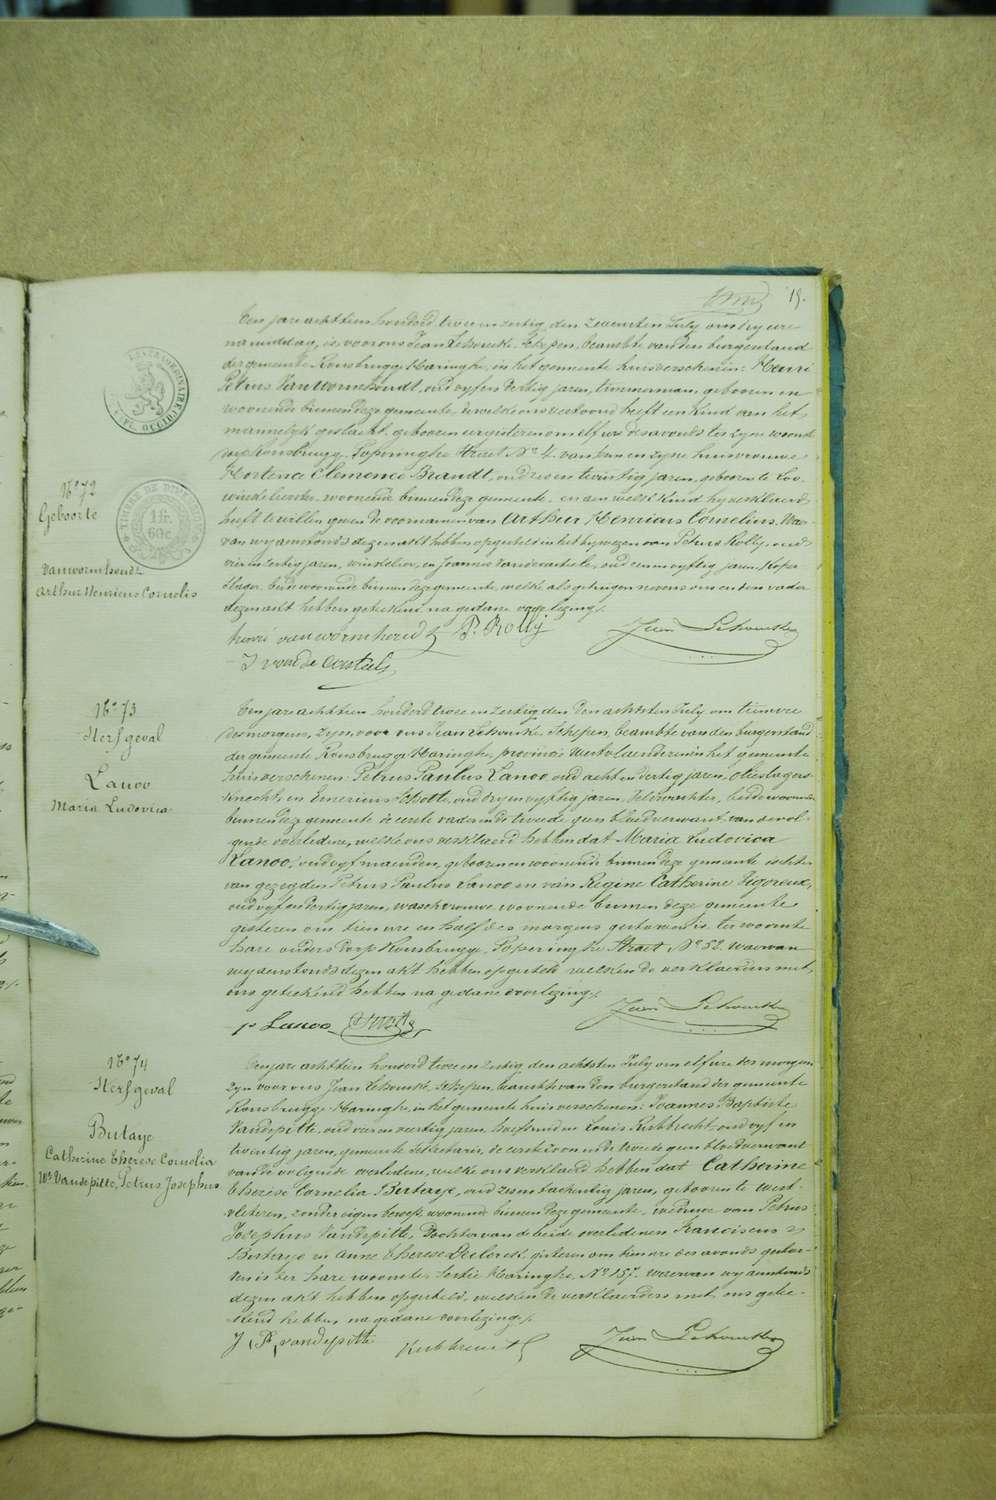 19.
Nº 72
Geboorte
Vanwormhoudt
Arthur Henricus Cornelis
TIMBRE DE DIMENSION
1 fr.
60 c.
Een jare achttien honderd twee en zestig, den zevensten July om vyf ure
namiddag, is voor ons Jean Lekouck, Schepen, Beambte van den burgerstand
der gemeente Rousbrugge Haringhe, in het gemeente huis verschenen: Henri
Petrus Vanwormhoudt, oud vyf en dertig jaren, timmerman, geboren en
woonende binnen deze gemeente, dewelke ons vertoond heeft een kind van het
mannelyk geslacht, geboren eergisteren om elf ure des avonds ter zyne woonst
Rousbrugge, Poperinghe Straet Nº 4. van hem en zyne huisvrouwe
Hortence Clemence Brandt, oud zes en twintig jaren, geboren te Loo,
woonende binnen deze gemeente, en aen welk kind hy verklaerd
heeft te willen geven de voornamen van Arthur Henricus Cornelius. Waer-
van wy aenstonds dezen akt hebben opgesteld in het bywezen van Petrus Rolly, oud
vier en dertig jaren, winkelier, en Joannes Vandecasteele, oud een en vyftig jaren,
beide woonende binnen deze gemeente, welke als getuigen nevens ons en den vader
dezen akt hebben geteekend na gedane voorlezing.
henri vanwormhoudt P. Rolly Jean Lekouck
J vande casteele
Nº 73
Sterfgeval
Lanoo
Maria Ludovica
Een jare achttien honderd twee en zestig den achtsten July om tien ure
des morgens, zyn voor ons Jean Lekouck, Schepen, beambte van den burgerstand
der gemeente Rousbrugge Haringhe, provincie Westvlaenderen in het gemeente
huis verschenen: Petrus Paulus Lanoo oud acht en dertig jaren, olieslagers-
knecht, en Emericus Schotte, oud dry en vyftig jaren, Veldwachter, beide woonende
binnen deze gemeente de eerste vader en de tweede geen bloedverwant van de vol-
gende overledene, welke ons verklaerd hebben dat Maria Ludovica
Lanoo, oud vyf maenden, geboren en woonende binnen deze gemeente dochter
van gezegden Petrus Paulus Lanoo en van Regine Catherine Vigoreux,
oud vyf en dertig jaren, waschvrouwe woonende binnen deze gemeente
gisteren om tien ure en half des morgens gestorven is ter woonste
hare ouders dorp Rousbrugge, Poperinghe Straet, Nº 52. waervan
wy aenstonds dezen akt hebben opgesteld welken de verklaerders met
ons geteekend hebben na gedane voorlezing.
p Lanoo Schotte Jean Lekouck
Nº 74
Sterfgeval
Butaye
Catherine Therese Cornelia
We Vandepitte, Petrus Josephus
Een jare achttien honderd twee en zestig den achtsten July om elf ure des morgens
zyn voor ons Jean Lekouck, Schepen, beambte van den burgerstand der gemeente
Rousbrugge Haringhe, in het gemeente huis verschenen: Joannes Baptiste
Vandepitte, oud vier en veertig jaren, hoefsmid en Louis Rubbrecht, oud vyf en
twintig jaren, gemeente Secretaris, de eerste zoon en de tweede geen bloedverwant
van de volgende overledene, welke ons verklaerd hebben dat Catherine
Therese Cornelia Butaye, oud zes en tachentig jaren, geboren te West-
vleteren, zonder eigen bewys, woonende binnen deze gemeente, weduwe van Petrus
Josephus Vandepitte, Dochter van de beide overledenen Franciscus
Butaye en Anne Therese Declerck, gisteren om tien ure des avonds gestor-
ven is ter hare woonste Sectie Haringhe, Nº 157. waervan wy aenstonds
dezen akt hebben opgesteld, welken de verklaerders met ons getee-
kend hebben na gedane voorlezing.
J B vandepitte Rubbrecht L Jean Lekouck